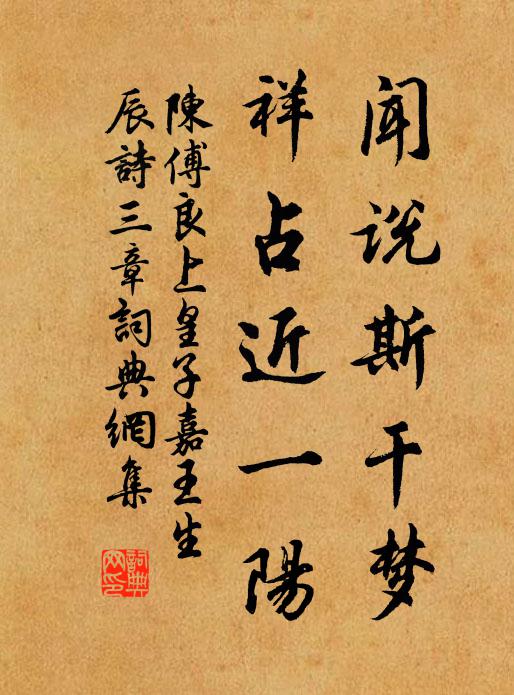 闻说斯干梦
祥占近一陽
陳傅良上皇子嘉王生
辰詩三章詞典網集
詞典网印